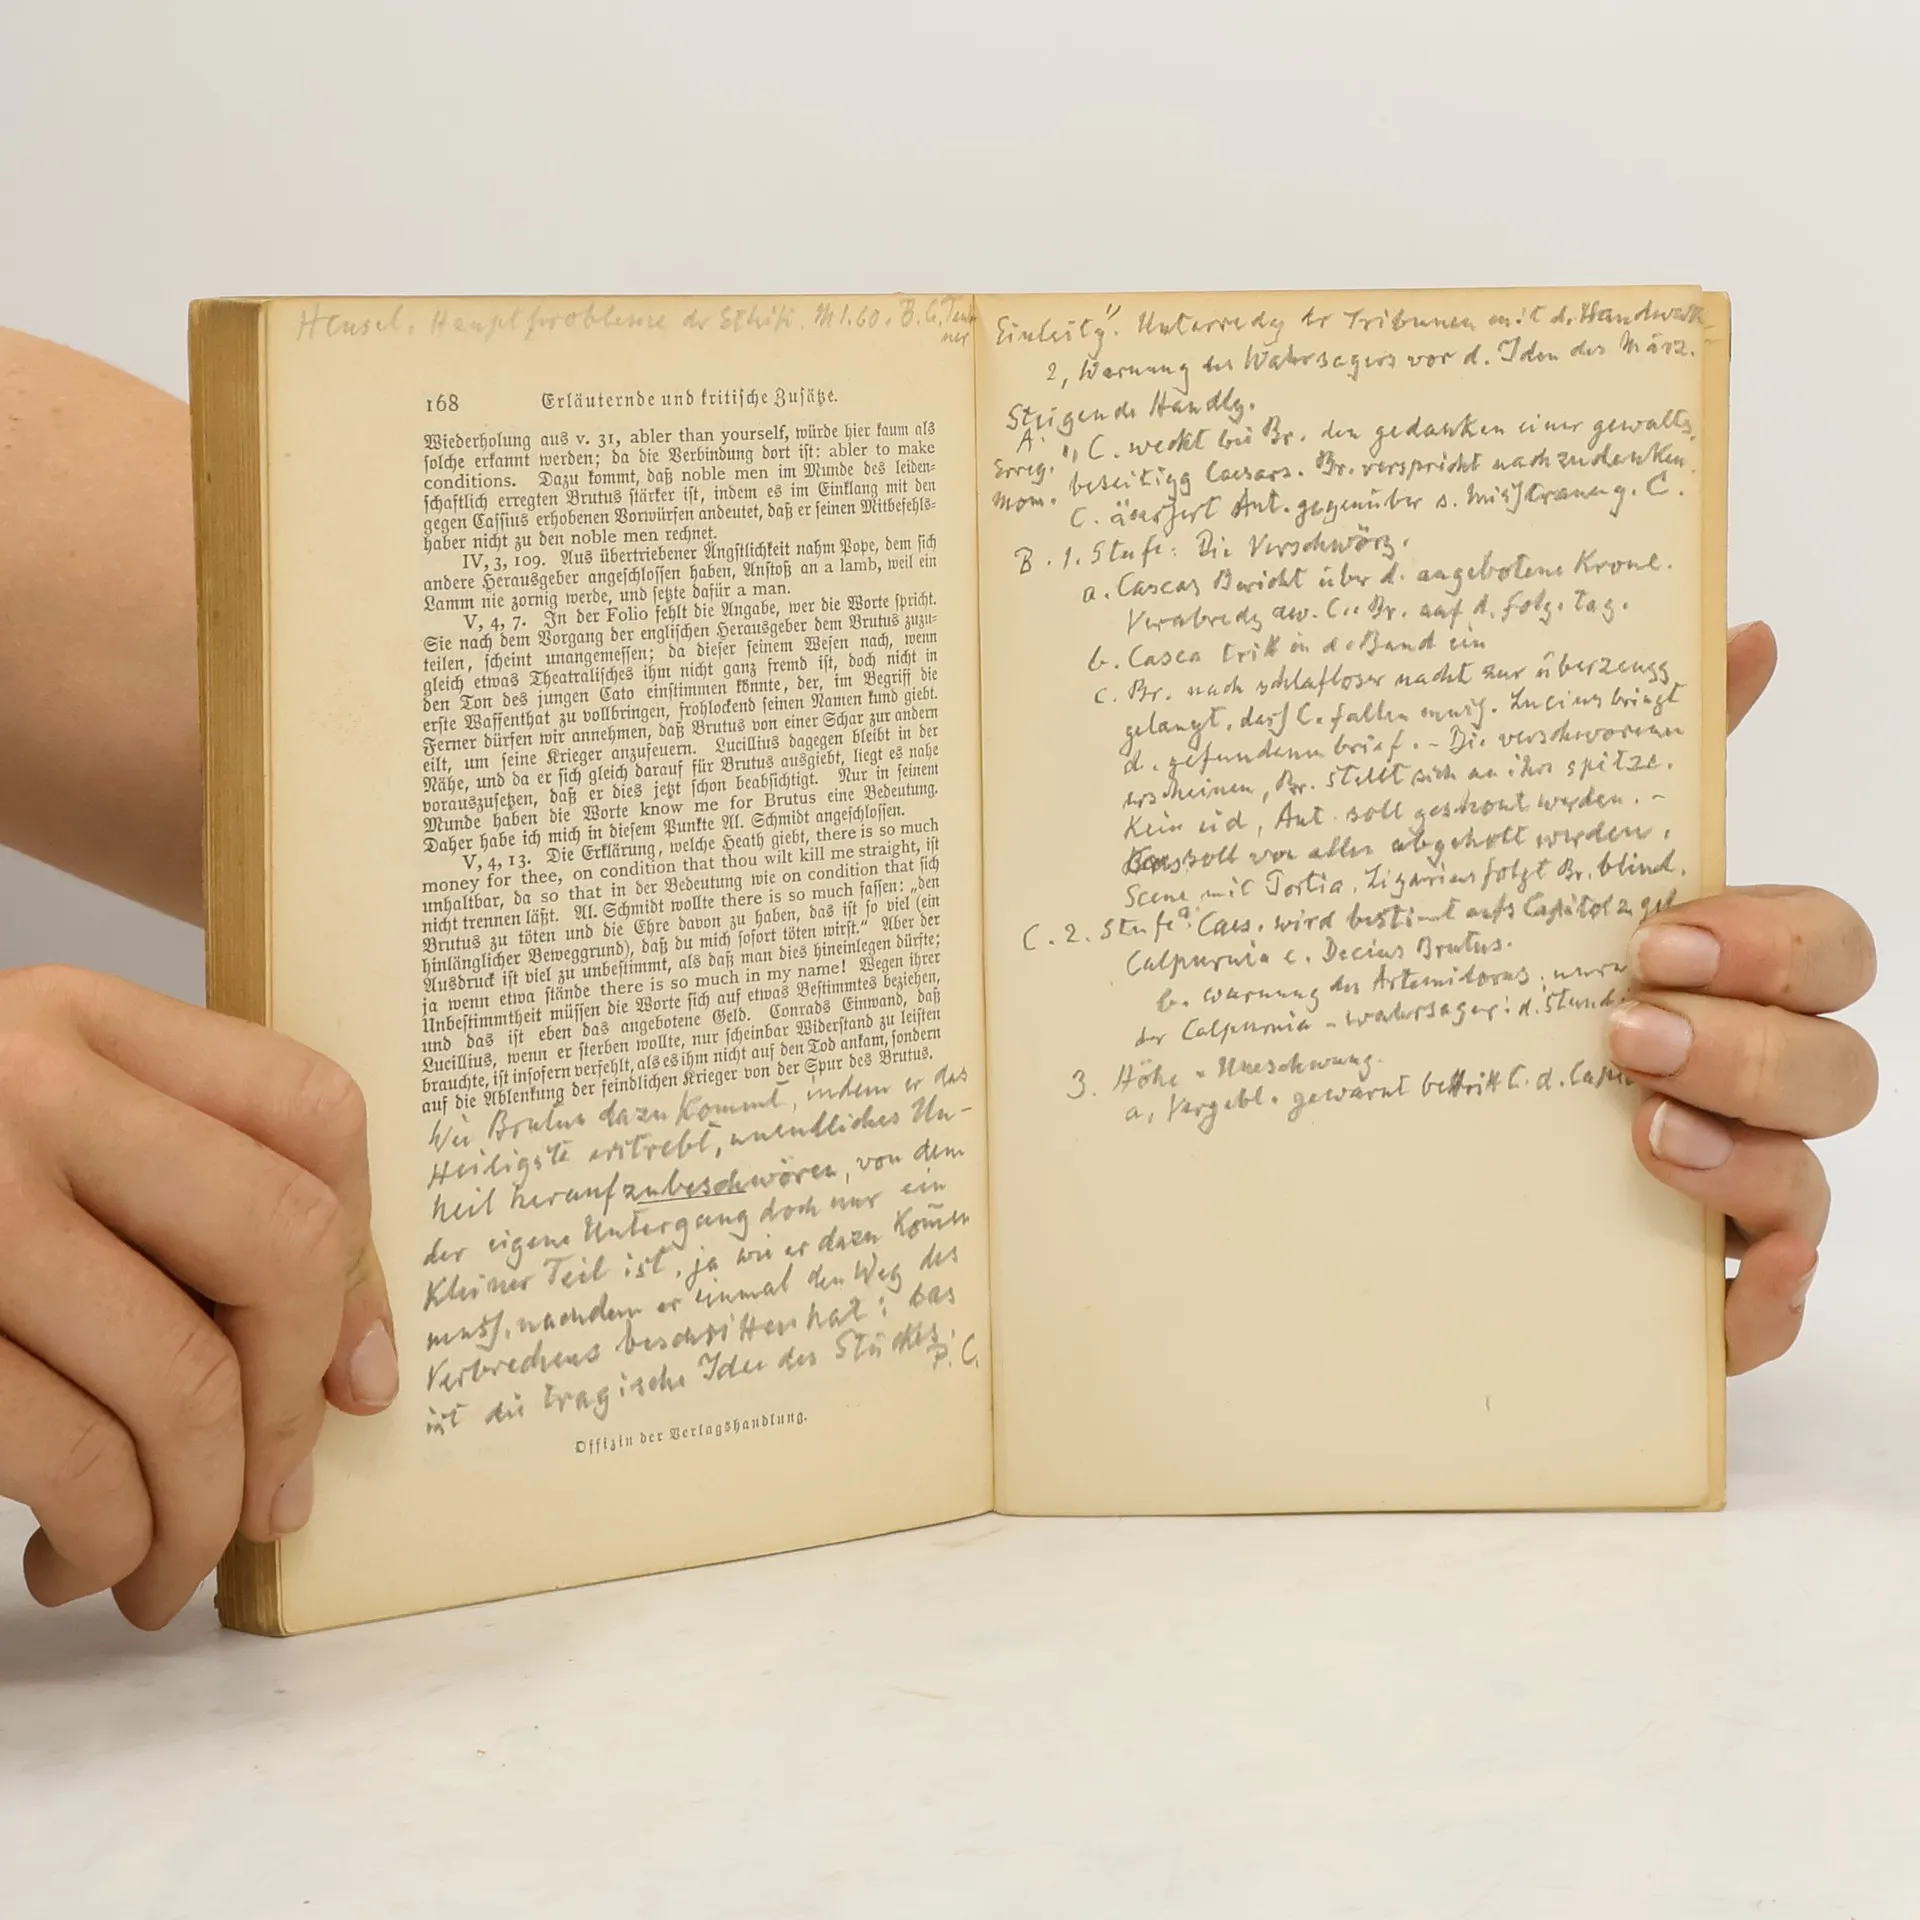 Hensel, Hauptprobleme der Ethik. M 1.60. B. G. Teub-
ner
168 Erläuternde und kritische Zusätze.
Wiederholung aus v. 31, abler than yourself, würde hier kaum als
solche erkannt werden; da die Verbindung dort ist: abler to make
conditions. Dazu kommt, daß noble men im Munde des leiden-
schaftlich erregten Brutus stärker ist, indem es im Einklang mit den
gegen Cassius erhobenen Vorwürfen andeutet, daß er seinen Mitbefehls-
haber nicht zu den noble men rechnet.
IV, 3, 109. Aus übertriebener Ängstlichkeit nahm Pope, dem sich
andere Herausgeber angeschlossen haben, Anstoß an a lamb, weil ein
Lamm nie zornig werde, und setzte dafür a man.
V, 4, 7. In der Folio fehlt die Angabe, wer die Worte spricht.
Sie nach dem Vorgang der englischen Herausgeber dem Brutus zuzu-
teilen, scheint unangemessen; da dieser seinem Wesen nach, wenn
gleich etwas Theatralisches ihm nicht ganz fremd ist, doch nicht in
den Ton des jungen Cato einstimmen könnte, der, im Begriff die
erste Waffenthat zu vollbringen, frohlockend seinen Namen kund giebt.
Ferner dürfen wir annehmen, daß Brutus von einer Schar zur andern
eilt, um seine Krieger anzufeuern. Lucillius dagegen bleibt in der
Nähe, und da er sich gleich darauf für Brutus ausgiebt, liegt es nahe
vorauszusetzen, daß er dies jetzt schon beabsichtigt. Nur in seinem
Munde haben die Worte know me for Brutus eine Bedeutung.
Daher habe ich mich in diesem Punkte Al. Schmidt angeschlossen.
V, 4, 13. Die Erklärung, welche Heath giebt, there is so much
money for thee, on condition that thou wilt kill me straight, ist
unhaltbar, da so that in der Bedeutung wie on condition that sich
nicht trennen läßt. Al. Schmidt wollte there is so much fassen: „den
Brutus zu töten und die Ehre davon zu haben, das ist so viel (ein
hinlänglicher Beweggrund), daß du mich sofort töten wirst.“ Aber der
Ausdruck ist viel zu unbestimmt, als daß man dies hineinlegen dürfte;
ja wenn etwa stände there is so much in my name! Wegen ihrer
Unbestimmtheit müssen die Worte sich auf etwas Bestimmtes beziehen,
und das ist eben das angebotene Geld. Conrads Einwand, daß
Lucillius, wenn er sterben wollte, nur scheinbar Widerstand zu leisten
brauchte, ist insofern verfehlt, als es ihm nicht auf den Tod ankam, sondern
auf die Ablenkung der feindlichen Krieger von der Spur des Brutus.
Wie Brutus dazu kommt, indem er das
Heiligste erstrebt, unendliches Un-
heil heraufzubeschwören, von dem
der eigene Untergang doch nur ein
kleiner Teil ist, ja wie er dazu kom̄en
muß, nachdem er einmal den Weg des
Verbrechens beschritten hat: das
ist die tragische Idee des Stückes.
P. C.
Offizin der Verlagshandlung.
Einleitg". Unterredg der Tribunen mit d. Handwerk-
2, Warnung des Wahrsagers vor d. Iden des März.
Steigende Handlg.
A. 1, C. weckt bei Br. den gedanken einer gewalts.
Erreg. beseitigg Caesars. Br. verspricht nachzudenken.
Mom. C. äussert Ant. gegenüber s. Mißtrauen g. C.
B. 1. Stufe: Die Verschwörg.
a. Cascas Bericht über d. angebotene Krone.
Verabredg zw. C. u. Br. auf d. folg. Tag.
b. Casca tritt in d. Bund ein
c. Br. nach schlafloser nacht zur überzeugg
gelangt, daß C. fallen muß. Lucius bringt
d. gefundenen brief. - Die verschworenen
erscheinen, Br. stellt sich an ihre spitze.
Kein eid, Ant. soll geschont werden. -
Caes soll von allen abgeholt werden.
Scene mit Portia. Ligarius folgt Br. blind.
C. 2. Stufe a. Caes. wird bestimt aufs Capitol z. geh
Calpurnia c. Decius Brutus.
b. Warnung des Artemidorus;
der Calpurnia - wahrsager: d. Stund
3. Höhe - Umschwung.
a, Vergebl. gewarnt betritt C. d. Capi